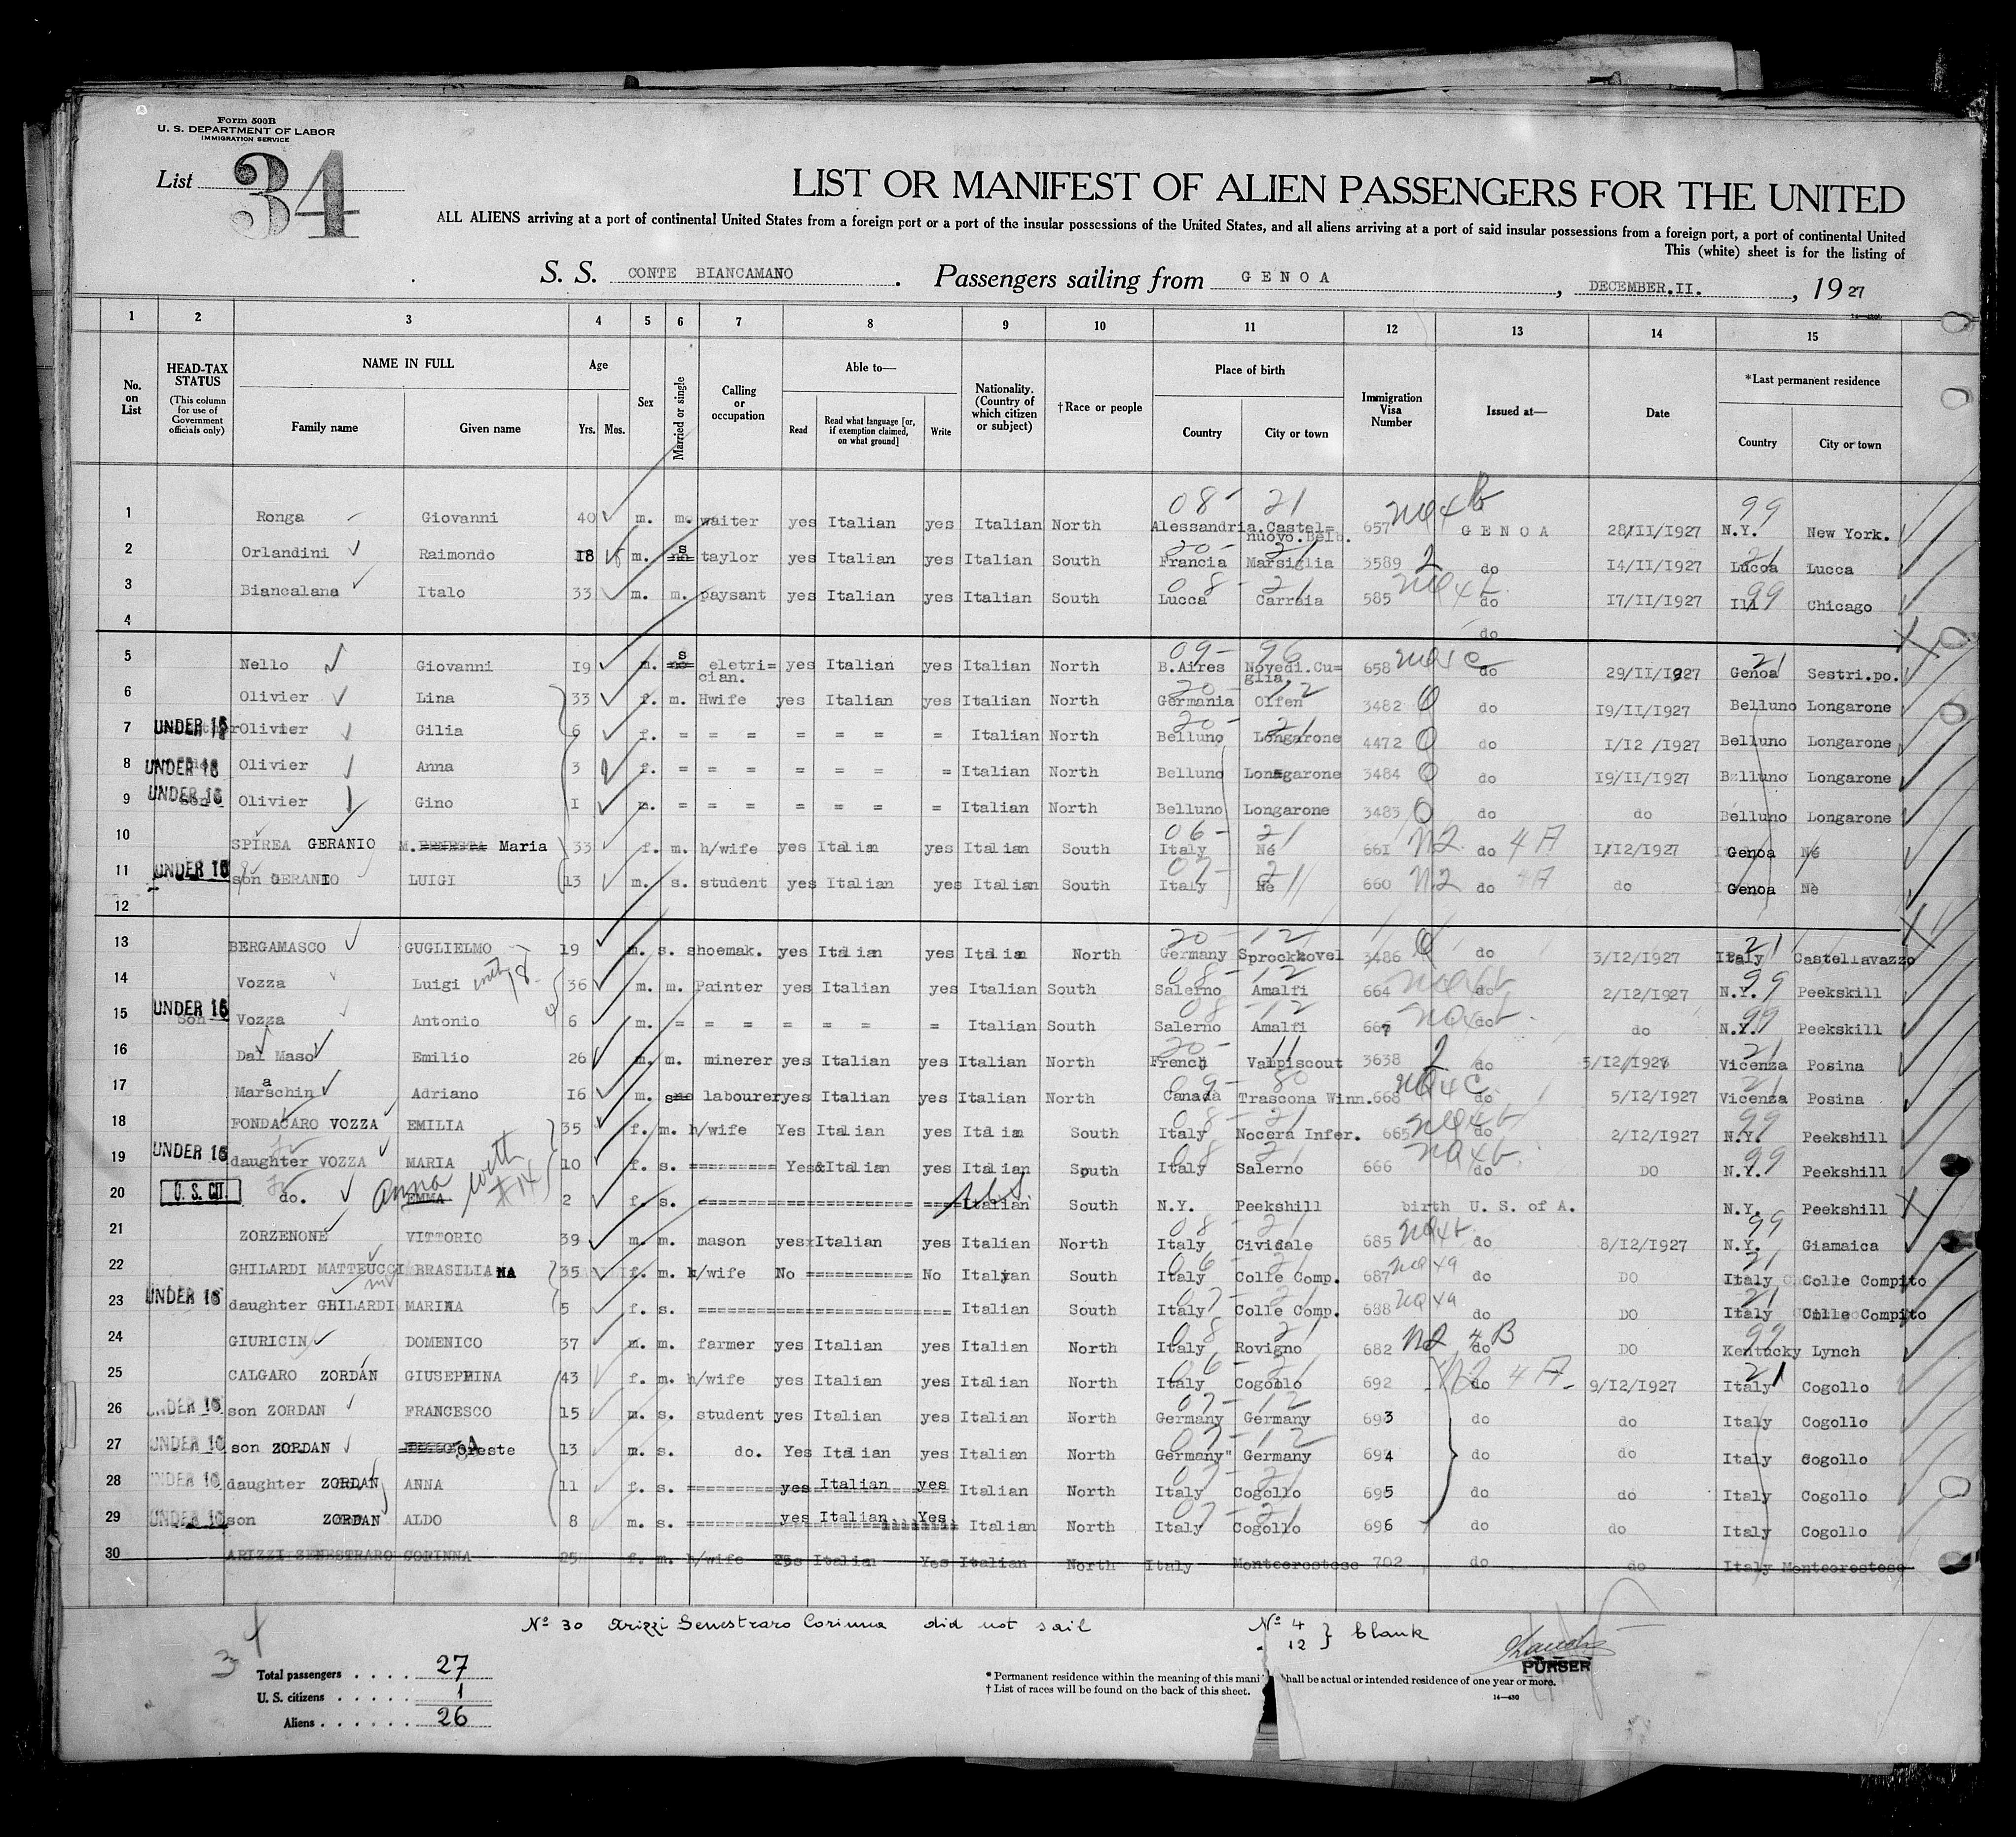 Form 500B
U. S. DEPARTMENT OF LABOR
IMMIGRATION SERVICE
List 34
LIST OR MANIFEST OF ALIEN PASSENGERS FOR THE UNITED
ALL ALIENS arriving at a port of continental United States from a foreign port or a port of the insular possessions of the United States, and all aliens arriving at a port of said insular possessions from a foreign port, a port of continental United
This (white) sheet is for the listing of
S. S. CONTE BIANCAMANO . Passengers sailing from GENOA , DECEMBER.II. , 19 27
1 2 3 4 5 6 7 8 9 10 11 12 13 14 15
No. on List
HEAD-TAX STATUS (This column for use of Government officials only)
NAME IN FULL Family name Given name
Age Yrs. Mos.
Sex
Married or single
Calling or occupation
Able to— Read Read what language [or, if exemption claimed, on what ground] Write
Nationality. (Country of which citizen or subject)
†Race or people
Place of birth Country City or town
Immigration Visa Number
Issued at—
Date
*Last permanent residence Country City or town
08- 21 99
1 Ronga Giovanni 40 m. m. waiter yes Italian yes Italian North Alessandria.Castel= nuovo.Belb. 657 GENOA 28/II/1927 N.Y. New York.
20- 21 21
2 Orlandini Raimondo 18 m. s taylor yes Italian yes Italian South Francia Marsiglia 3589 2 do 14/II/1927 Lucca Lucca
08- 21 99
3 Biancalana Italo 33 m. m. paysant yes Italian yes Italian South Lucca Carraia 585 do 17/II/1927 Ill Chicago
4 do
09- 96 21
5 Nello Giovanni 19 m. s eletri= cian. yes Italian yes Italian North B.Aires Novedi.Cu= glia. 658 do 29/II/1927 Genoa Sestri.po.
20- 12
6 Olivier Lina 33 f. m. Hwife yes Italian yes Italian North Germania Olfen 3482 0 do 19/II/1927 Belluno Longarone
20- 21
7 UNDER 16 Olivier Gilia 6 f. = = = = = = = Italian North Belluno Longarone 4472 0 do 1/12 /1927 Belluno Longarone
8 UNDER 16 Olivier Anna 3 f. = = = = = = = Italian North Belluno Longarone 3484 0 do 19/II/1927 Belluno Longarone
9 UNDER 16 son Olivier Gino I m. = = = = = = = Italian North Belluno Longarone 3483 0 do do Belluno Longarone
06- 21
10 SPIREA GERANIO M. Maria 33 f. m. h/wife yes Italian yes Italian South Italy Né 661 N2 do 4A 1/12/1927 Genoa Né
07- 21
11 UNDER 16 son GERANIO LUIGI 13 m. s. student yes Italian yes Italian South Italy Né 660 N2 do 4A do Genoa Nè
12
20- 12 21
13 BERGAMASCO GUGLIELMO 19 m. s. shoemak. yes Italian yes Italian North Germany Sprockhovel 3486 0 do 3/12/1927 Italy Castellavazzo
08- 12 99
14 Vozza Luigi with 18 36 m. m. Painter yes Italian yes Italian South Salerno Amalfi 664 do 2/12/1927 N.Y. Peekskill
08- 12 99
15 UNDER 16 Son Vozza Antonio 6 m. = = = = = = = Italian South Salerno Amalfi 667 do do N.Y. Peekskill
20- 11 21
16 Dal Maso Emilio 26 m. m. minerer yes Italian yes Italian North French Valpiscout 3638 2 do 5/12/1927 Vicenza Posina
09- 80 21
17 Maraschin Adriano 16 m. s labourer yes Italian yes Italian North Canada Trascona Winn. 668 do 5/12/1927 Vicenza Posina
08- 21 99
18 FONDACARO VOZZA EMILIA 35 f. m. h/wife Yes Italian yes Italian South Italy Nocera Infer. 665 do 2/12/1927 N.Y. Peekshill
08 21 99
19 UNDER 16 daughter VOZZA MARIA 10 f. s. ========= Yes&Italian yes Italian South Italy Salerno 666 do DO N.Y. Peekshill
20 U. S. CIT. do. Anna EMMA with #14 2 f. s. ===================== Italian South N.Y. Peekshill birth U. S. of A. N.Y. Peekshill
08- 21 99
21 ZORZENONE VITTORIO 39 m. m. mason yes Italian yes Italian North Italy Cividale 685 do 8/12/1927 N.Y. Giamaica
06 21 21
22 GHILARDI MATTEUCCI BRASILIANA 35 f. m. h/wife No =========== No Italian South Italy Colle Comp. 687 do DO Italy Colle Compito
07- 21 21
23 UNDER 16 daughter GHILARDI MARINA 5 f. s. ========================== Italian South Italy Colle Comp. 688 do DO Italy Colle Compito
08 21 99
24 GIURICIN DOMENICO 37 m. m. farmer yes Italian yes Italian North Italy Rovigno 682 N2 4B do DO Kentucky Lynch
06- 21 21
25 CALGARO ZORDAN GIUSEPPINA 43 f. m. h/wife yes Italian yes Italian North Italy Cogollo 692 N2 do 4A- 9/12/1927 Italy Cogollo
07- 12
26 UNDER 16 son ZORDAN FRANCESCO 15 m. s. student yes Italian yes Italian North Germany Germany 693 do do Italy Cogollo
07- 12
27 UNDER 16 son ZORDAN Oreste 13 m. s. do. Yes Italian yes Italian North Germany" Germany 694 do do Italy Cogollo
07- 21
28 UNDER 16 daughter ZORDAN ANNA 11 f. s. ========= yes Italian yes Italian North Italy Cogollo 695 do do Italy Cogollo
07- 21
29 UNDER 16 son ZORDAN ALDO 8 m. s. ========= yes Italian Yes Italian North Italy Cogollo 696 do do Italy Cogollo
30 ARIZZI ZENESTRARO CORINNA 25 f. m. h/wife Yes Italian Yes Italian North Italy Montecrestese 702 do do Italy Montecrestese
Nº 30 Arizzi Senestraro Corinna did not sail Nº 4 12 } blank
PURSER
34
Total passengers . . . . 27
U. S. citizens . . . . . 1
Aliens . . . . . . 26
* Permanent residence within the meaning of this mani shall be actual or intended residence of one year or more.
† List of races will be found on the back of this sheet.
14—430